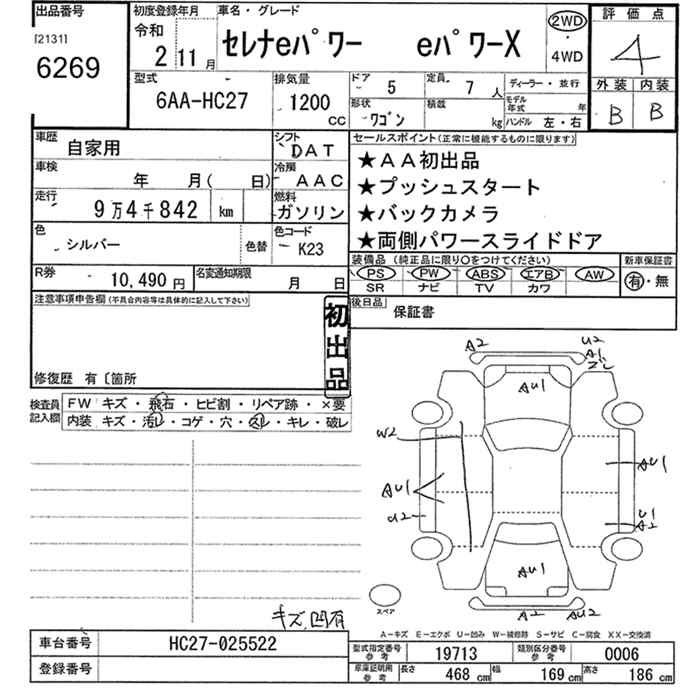 出品番号 初度登録年月 車名・グレード 評価点
[2131] 令和 2WD
6269 2 11月 セレナeパワー eパワーX 4WD 4
型式 排気量 ドア 5 定員 7人 ディーラー・並行 外装 内装
6AA-HC27 1200cc 形状 ワゴン 積載 kg モデル年式 年 ハンドル 左・右 B B
車歴 自家用 シフト DAT セールスポイント(正常に機能するものに限ります)
車検 年 月( 日) 冷房 AAC ★AA初出品
★プッシュスタート
走行 9万4千842 km 燃料 ガソリン ★バックカメラ
色 シルバー 色替 色コード K23 ★両側パワースライドドア
装備品(純正品に限り○をつけてください) 新車保証書
R券 10,490円 名変通知期限 月 日 PS PW ABS エアB AW 有・無
SR ナビ TV カワ
注意事項申告欄(不具合内容等は具体的に記入して下さい) 初出品 後日品 保証書
修復歴 有〔箇所
検査員記入欄 FW キズ・飛石・ヒビ割・リペア跡・×要
内装 キズ・汚レ・コゲ・穴・スレ・キレ・破レ
A2 U2
A1
AU1
W2
AU1 AU1
U2 U1
A2
AU1
A2 AU2
スペア
キズ、凹有
A-キズ E-エクボ U-凹み W-補修跡 S-サビ C-腐食 XX-交換済
車台番号 HC27-025522 型式指定番号 参考 19713 類別区分番号 参考 0006
登録番号 車庫証明用 参考 長さ 468cm 幅 169cm 高さ 186cm